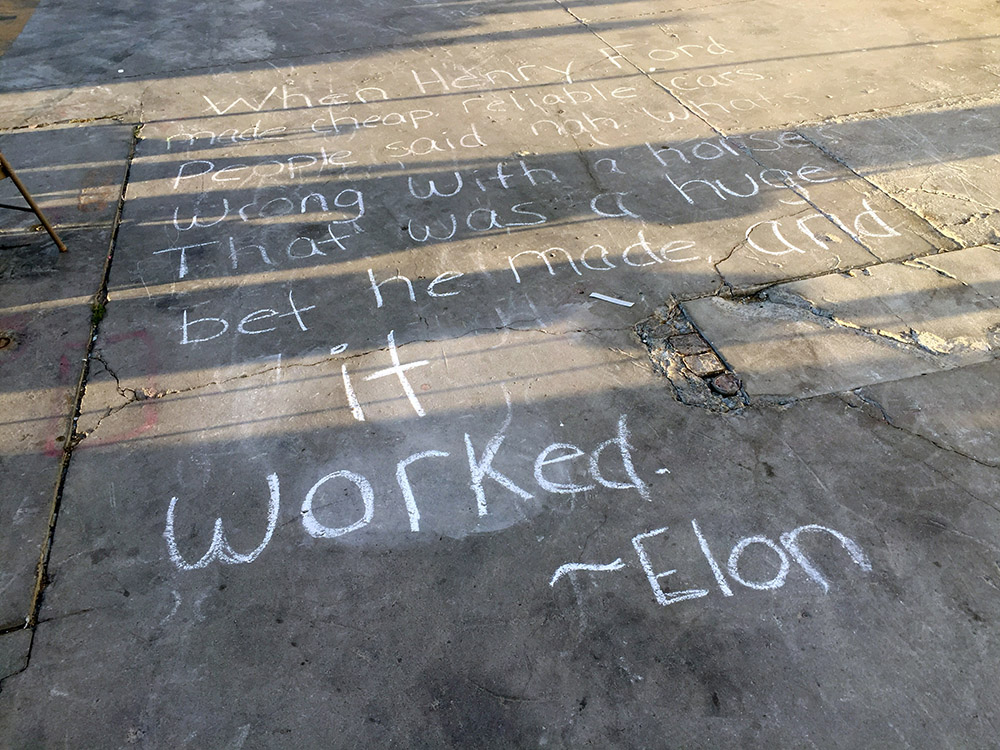 When Henry Ford
made cheap, reliable cars
People said nah, whats
wrong with a horse
That was a huge
bet he made, and
it
worked.
~Elon